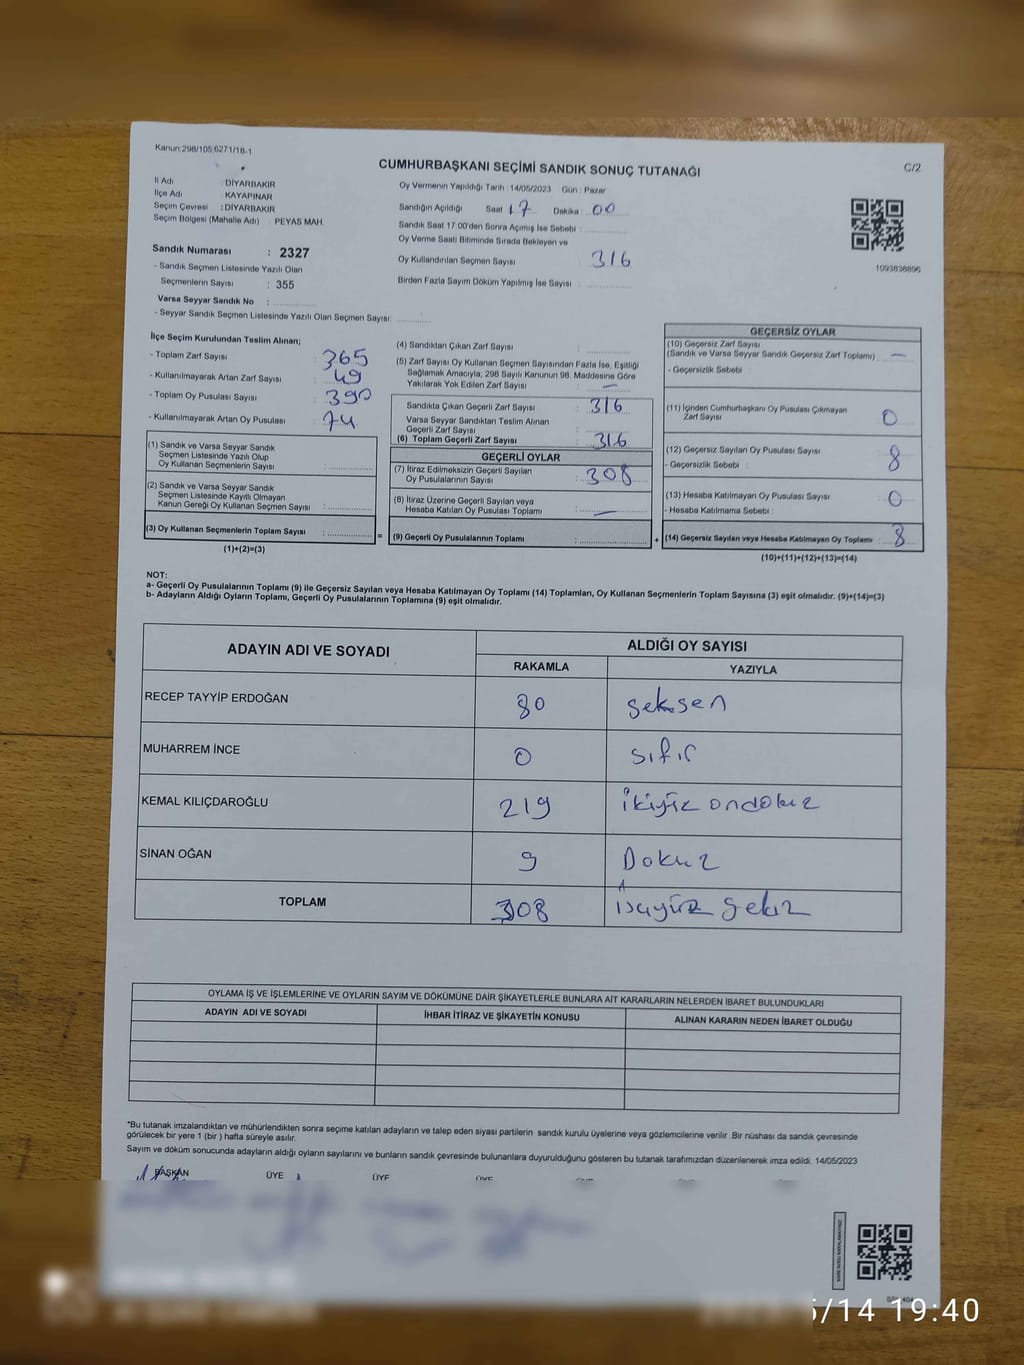 Kanun:298/105,6271/18-1
C/2
CUMHURBAŞKANI SEÇİMİ SANDIK SONUÇ TUTANAĞI
İl Adı : DİYARBAKIR
İlçe Adı : KAYAPINAR
Seçim Çevresi : DİYARBAKIR
Seçim Bölgesi (Mahalle Adı) : PEYAS MAH.
Sandık Numarası : 2327
- Sandık Seçmen Listesinde Yazılı Olan
Seçmenlerin Sayısı : 355
Varsa Seyyar Sandık No :
- Seyyar Sandık Seçmen Listesinde Yazılı Olan Seçmen Sayısı:
Oy Vermenin Yapıldığı Tarih : 14/05/2023 Gün : Pazar
Sandığın Açıldığı Saat 17 Dakika : 00
Sandık Saat 17:00'den Sonra Açımış İse Sebebi :
Oy Verme Saati Bitiminde Sırada Bekleyen ve
Oy Kullandırılan Seçmen Sayısı : 316
Birden Fazla Sayım Döküm Yapılmış İse Sayısı :
1093838896
İlçe Seçim Kurulundan Teslim Alınan;
- Toplam Zarf Sayısı : 365
- Kullanılmayarak Artan Zarf Sayısı : 49
- Toplam Oy Pusulası Sayısı : 390
- Kullanılmayarak Artan Oy Pusulası : 74
(1) Sandık ve Varsa Seyyar Sandık
Seçmen Listesinde Yazılı Olup
Oy Kullanan Seçmenlerin Sayısı :
(2) Sandık ve Varsa Seyyar Sandık
Seçmen Listesinde Kayıtlı Olmayan
Kanun Gereği Oy Kullanan Seçmen Sayısı :
(3) Oy Kullanan Seçmenlerin Toplam Sayısı :
(1)+(2)=(3)
=
(4) Sandıktan Çıkan Zarf Sayısı :
(5) Zarf Sayısı Oy Kullanan Seçmen Sayısından Fazla İse, Eşitliği
Sağlamak Amacıyla; 298 Sayılı Kanunun 98. Maddesine Göre
Yakılarak Yok Edilen Zarf Sayısı : —
Sandıkta Çıkan Geçerli Zarf Sayısı : 316
Varsa Seyyar Sandıktan Teslim Alınan
Geçerli Zarf Sayısı :
(6) Toplam Geçerli Zarf Sayısı : 316
GEÇERLİ OYLAR
(7) İtiraz Edilmeksizin Geçerli Sayılan
Oy Pusulalarının Sayısı : 308
(8) İtiraz Üzerine Geçerli Sayılan veya
Hesaba Katılan Oy Pusulası Toplamı : —
(9) Geçerli Oy Pusulalarının Toplamı :
+
GEÇERSİZ OYLAR
(10) Geçersiz Zarf Sayısı
(Sandık ve Varsa Seyyar Sandık Geçersiz Zarf Toplamı) : —
- Geçersizlik Sebebi :
(11) İçinden Cumhurbaşkanı Oy Pusulası Çıkmayan
Zarf Sayısı : 0
(12) Geçersiz Sayılan Oy Pusulası Sayısı : 8
- Geçersizlik Sebebi :
(13) Hesaba Katılmayan Oy Pusulası Sayısı : 0
- Hesaba Katılmama Sebebi :
(14) Geçersiz Sayılan veya Hesaba Katılmayan Oy Toplamı : 8
(10)+(11)+(12)+(13)=(14)
NOT:
a- Geçerli Oy Pusulalarının Toplamı (9) ile Geçersiz Sayılan veya Hesaba Katılmayan Oy Toplamı (14) Toplamları, Oy Kullanan Seçmenlerin Toplam Sayısına (3) eşit olmalıdır. (9)+(14)=(3)
b- Adayların Aldığı Oyların Toplamı, Geçerli Oy Pusulalarının Toplamına (9) eşit olmalıdır.
ADAYIN ADI VE SOYADI
ALDIĞI OY SAYISI
RAKAMLA YAZIYLA
RECEP TAYYİP ERDOĞAN 80 seksen
MUHARREM İNCE 0 sıfır
KEMAL KILIÇDAROĞLU 219 ikiyüz ondokuz
SİNAN OĞAN 9 Dokuz
TOPLAM 308 üçyüz sekiz
OYLAMA İŞ VE İŞLEMLERİNE VE OYLARIN SAYIM VE DÖKÜMÜNE DAİR ŞİKAYETLERLE BUNLARA AİT KARARLARIN NELERDEN İBARET BULUNDUKLARI
ADAYIN ADI VE SOYADI İHBAR İTİRAZ VE ŞİKAYETİN KONUSU ALINAN KARARIN NEDEN İBARET OLDUĞU
*Bu tutanak imzalandıktan ve mühürlendikten sonra seçime katılan adayların ve talep eden siyasi partilerin sandık kurulu üyelerine veya gözlemcilerine verilir .Bir nüshası da sandık çevresinde
görülecek bir yere 1 (bir ) hafta süreyle asılır.
Sayım ve döküm sonucunda adayların aldığı oyların sayılarını ve bunların sandık çevresinde bulunanlara duyurulduğunu gösteren bu tutanak tarafımızdan düzenlenerek imza edildi. 14/05/2023
BAŞKAN ÜYE ÜYE ÜYE
/14 19:40